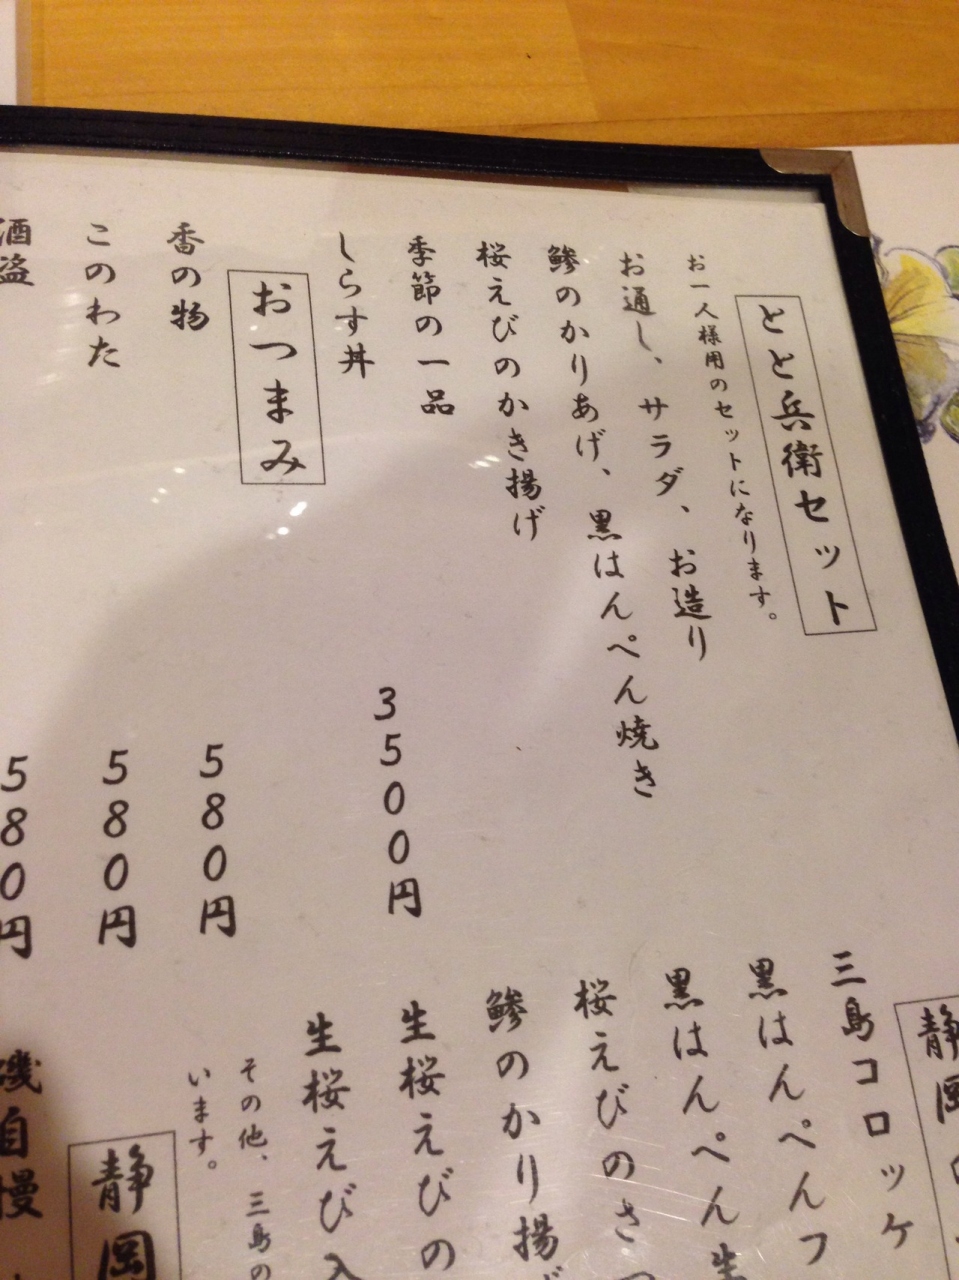 とと兵衛セット
お一人様用のセットになります。
お通し、サラダ、お造り
鯵のかりあげ、黒はんぺん焼き
桜えびのかき揚げ
季節の一品
しらす丼
3500円
おつまみ
香の物
580円
このわた
580円
酒盗
580円
静岡
三島コロッケ
黒はんぺんフ
黒はんぺん
桜えびのさつ
鯵のかり揚げ
生桜えびの
生桜えび入
その他、三島の
います。
静岡
磯自慢